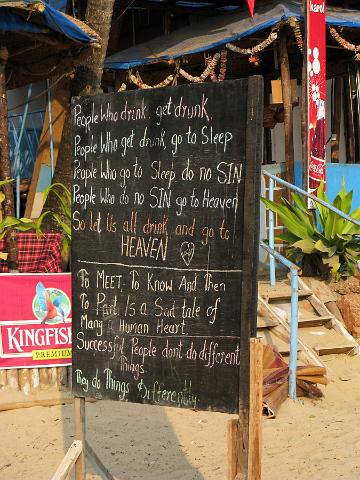 karol
People who drink, get drunk,
People who get drunk, go to Sleep
People who go to Sleep do no SIN
People who do no SIN go to Heaven
So let us all drink and go to
HEAVEN
To MEET, To Know And Then
To Part Is a Sad tale of
Many a Human Heart
Successful People dont do different
things
They do Things Differently.
KINGFIS
PREMIUM